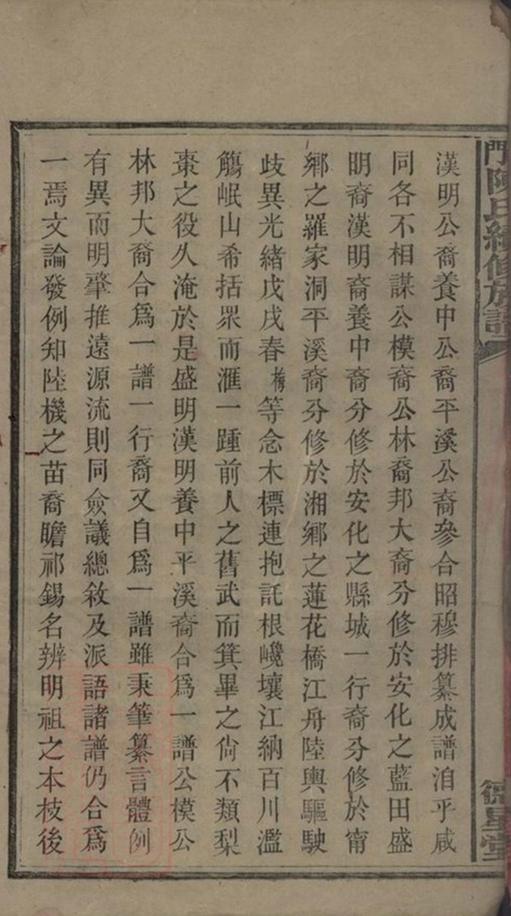 門陳氏續修族譜
德星堂
漢明公裔養中公裔平溪公裔參合昭穆排纂成譜洎乎咸
同各不相謀公模裔公林裔邦大裔分修於安化之藍田盛
明裔漢明裔養中裔分修於安化之縣城一行裔分修於甯
鄉之羅家洞平溪裔分修於湘鄉之蓮花橋江舟陸輿驅駛
歧異光緒戊戌春梅等念木標連抱託根巉壤江納百川濫
觴岷山希括眾而滙一踵前人之舊武而箕畢之尙不類梨
棗之役久淹於是盛明漢明養中平溪裔合爲一譜公模公
林邦大裔合爲一譜一行裔又自爲一譜雖秉筆纂言體例
有異而明肇推遠源流則同僉議總敘及派語諸譜仍合爲
一焉文論發例知陸機之苗裔瞻祁錫名辨明祖之本枝後